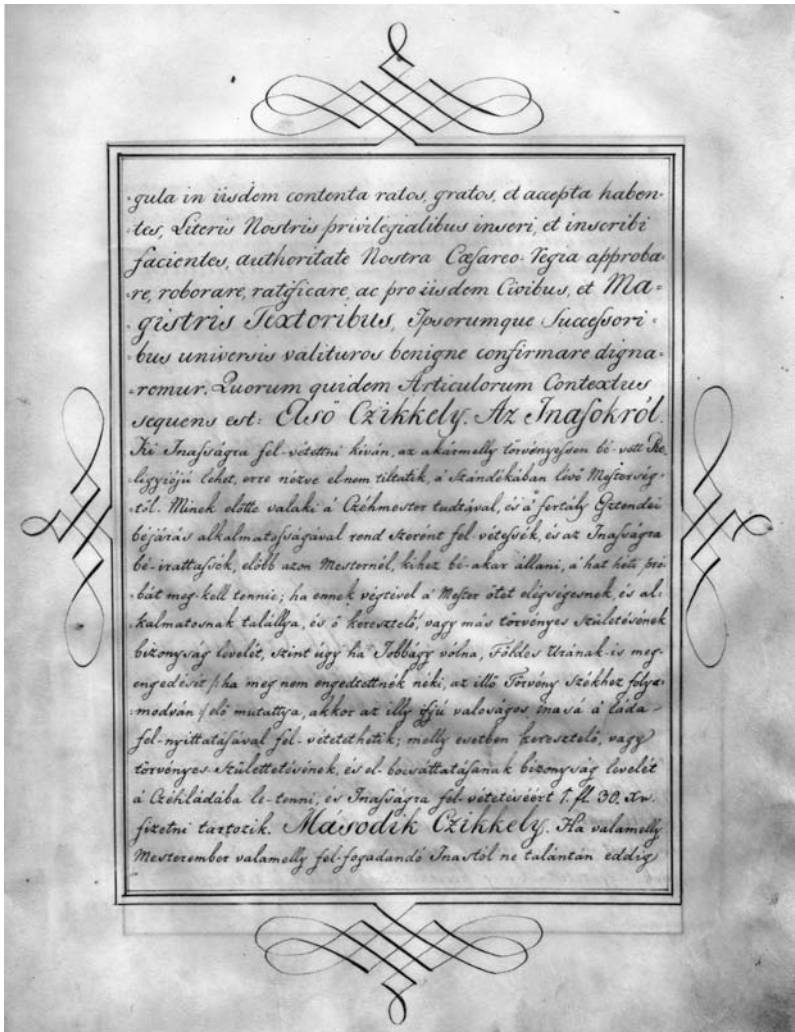 -gula in iisdem contenta ratos, gratos, et accepta haben-
-tes, Literis Nostris privilegialibus inseri, et inscribi
facientes, authoritate Nostra Cæsareo-regia approba-
-re, roborare, ratificare, ac pro iisdem Civibus, et Ma-
gistris Textoribus, Ipsorumque Successori-
bus universis valituros benigne confirmare digna-
-remur. Quorum quidem Articulorum Contextus
sequens est: Első Czikkely. Az Inasokról.
Ki Inasságra fel-vétettni kíván, az akármelly törvényessen bé-vett Re-
ligyiójú lehet, erre nézve el nem tiltatik, á szándékában lévő Mesterség-
-től. Minek előtte valaki á Czéhmester tudtával, és á fertály Esztendei
béjárás alkalmatosságával rend szerént fel-vétessék, és az Inasságra
bé-irattassék, előbb azon Mesternél, kihez bé-akar állani, á hat heti pró-
bát meg-kell tennie; ha ennek végivel á Mester ötet elégségesnek, és al-
-kalmatosnak talállya, és ő keresztelő, vagy más törvényes születésének
bizonyság levelét, szint úgy ha Jobbágy vólna, Földes Urának-is meg-
-engedésit /: ha meg nem engedtettnék néki, az illő Törvény Székhez folya-
-modván :/ elő mutattya, akkor az illy ifjú valoságos inasá á láda
fel-nyittatásával fel-vétetethetik; melly esetben keresztelő, vagy
törvényes-születtetésének, és el-bocsáttatásának bizonyság levelét
á Czéhládába le-tenni, és Inasságra fel-vétetéséért 1. fl. 30. Xr.
fizetni tartozik. Második Czikkely. Ha valamelly
Mesterember valamelly fel-fogadandó Inastól ne talántán eddig